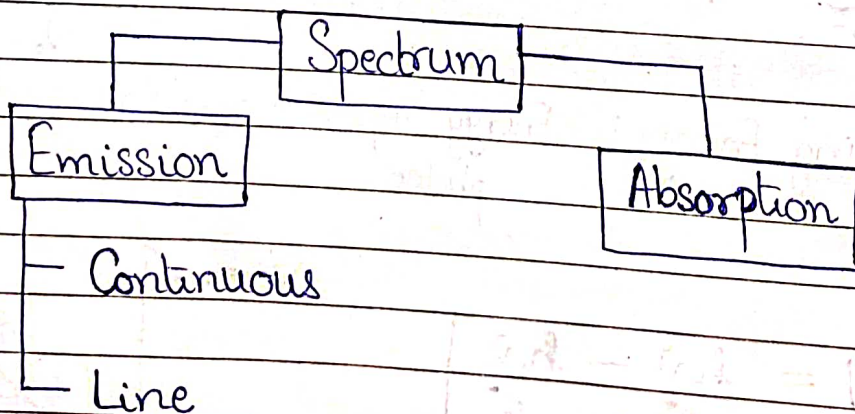 Spectrum
Emission
Absorption
Continuous
Line